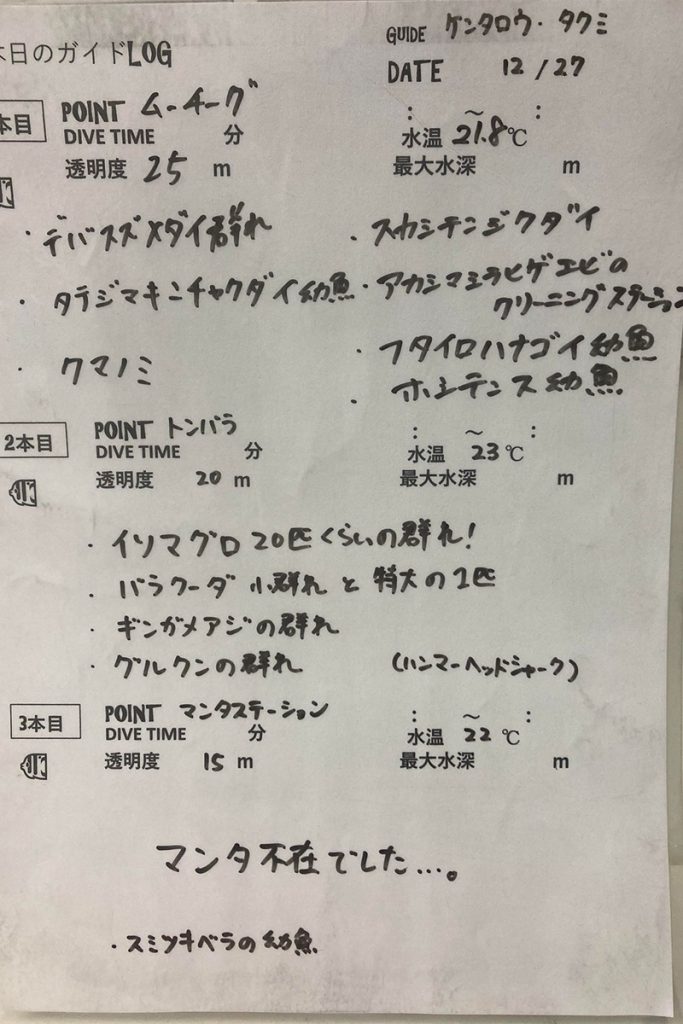 本日のガイドLOG
GUIDE ケンタロウ・タクミ
DATE 12/27
本目 POINT ムーチーグ : ～ :
DIVE TIME 分 水温 21.8℃
透明度 25 m 最大水深 m
・デバスズメダイ群れ ・スカシテンジクダイ
・タテジマキンチャクダイ幼魚 ・アカシマシラヒゲエビの
クリーニングステーション
・クマノミ ・フタイロハナゴイ幼魚
・ホシテンス幼魚
2本目 POINT トンバラ : ～ :
DIVE TIME 分 水温 23℃
透明度 20 m 最大水深 m
・イソマグロ20匹くらいの群れ!
・バラクーダ 小群れ と 特大の1匹
・ギンガメアジの群れ
・グルクンの群れ (ハンマーヘッドシャーク)
3本目 POINT マンタステーション : ～ :
DIVE TIME 分 水温 22℃
透明度 15 m 最大水深 m
マンタ不在でした…。
・スミツキベラの幼魚